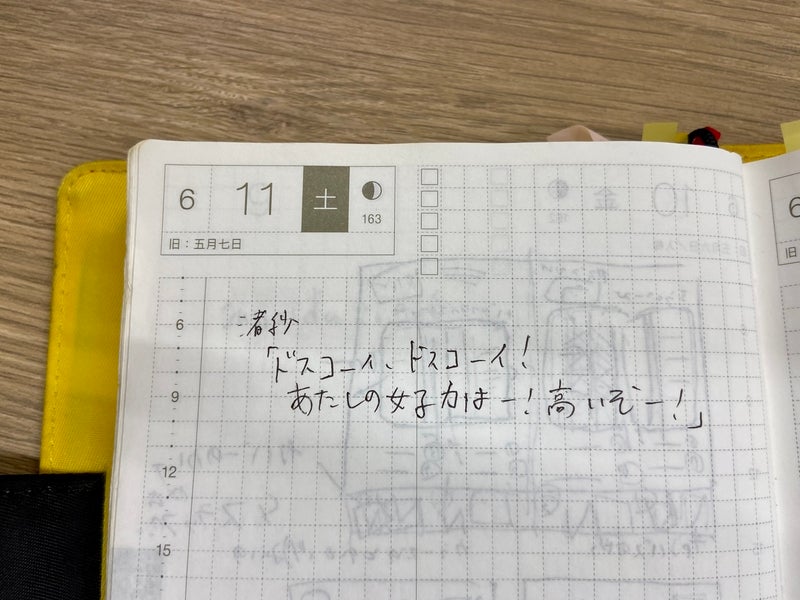 6 11 土
163
旧：五月七日
6
渚紗
「ドスコーイ、ドスコーイ！
9
あたしの女子力はー！高いぞー！」
12
15
6
旧